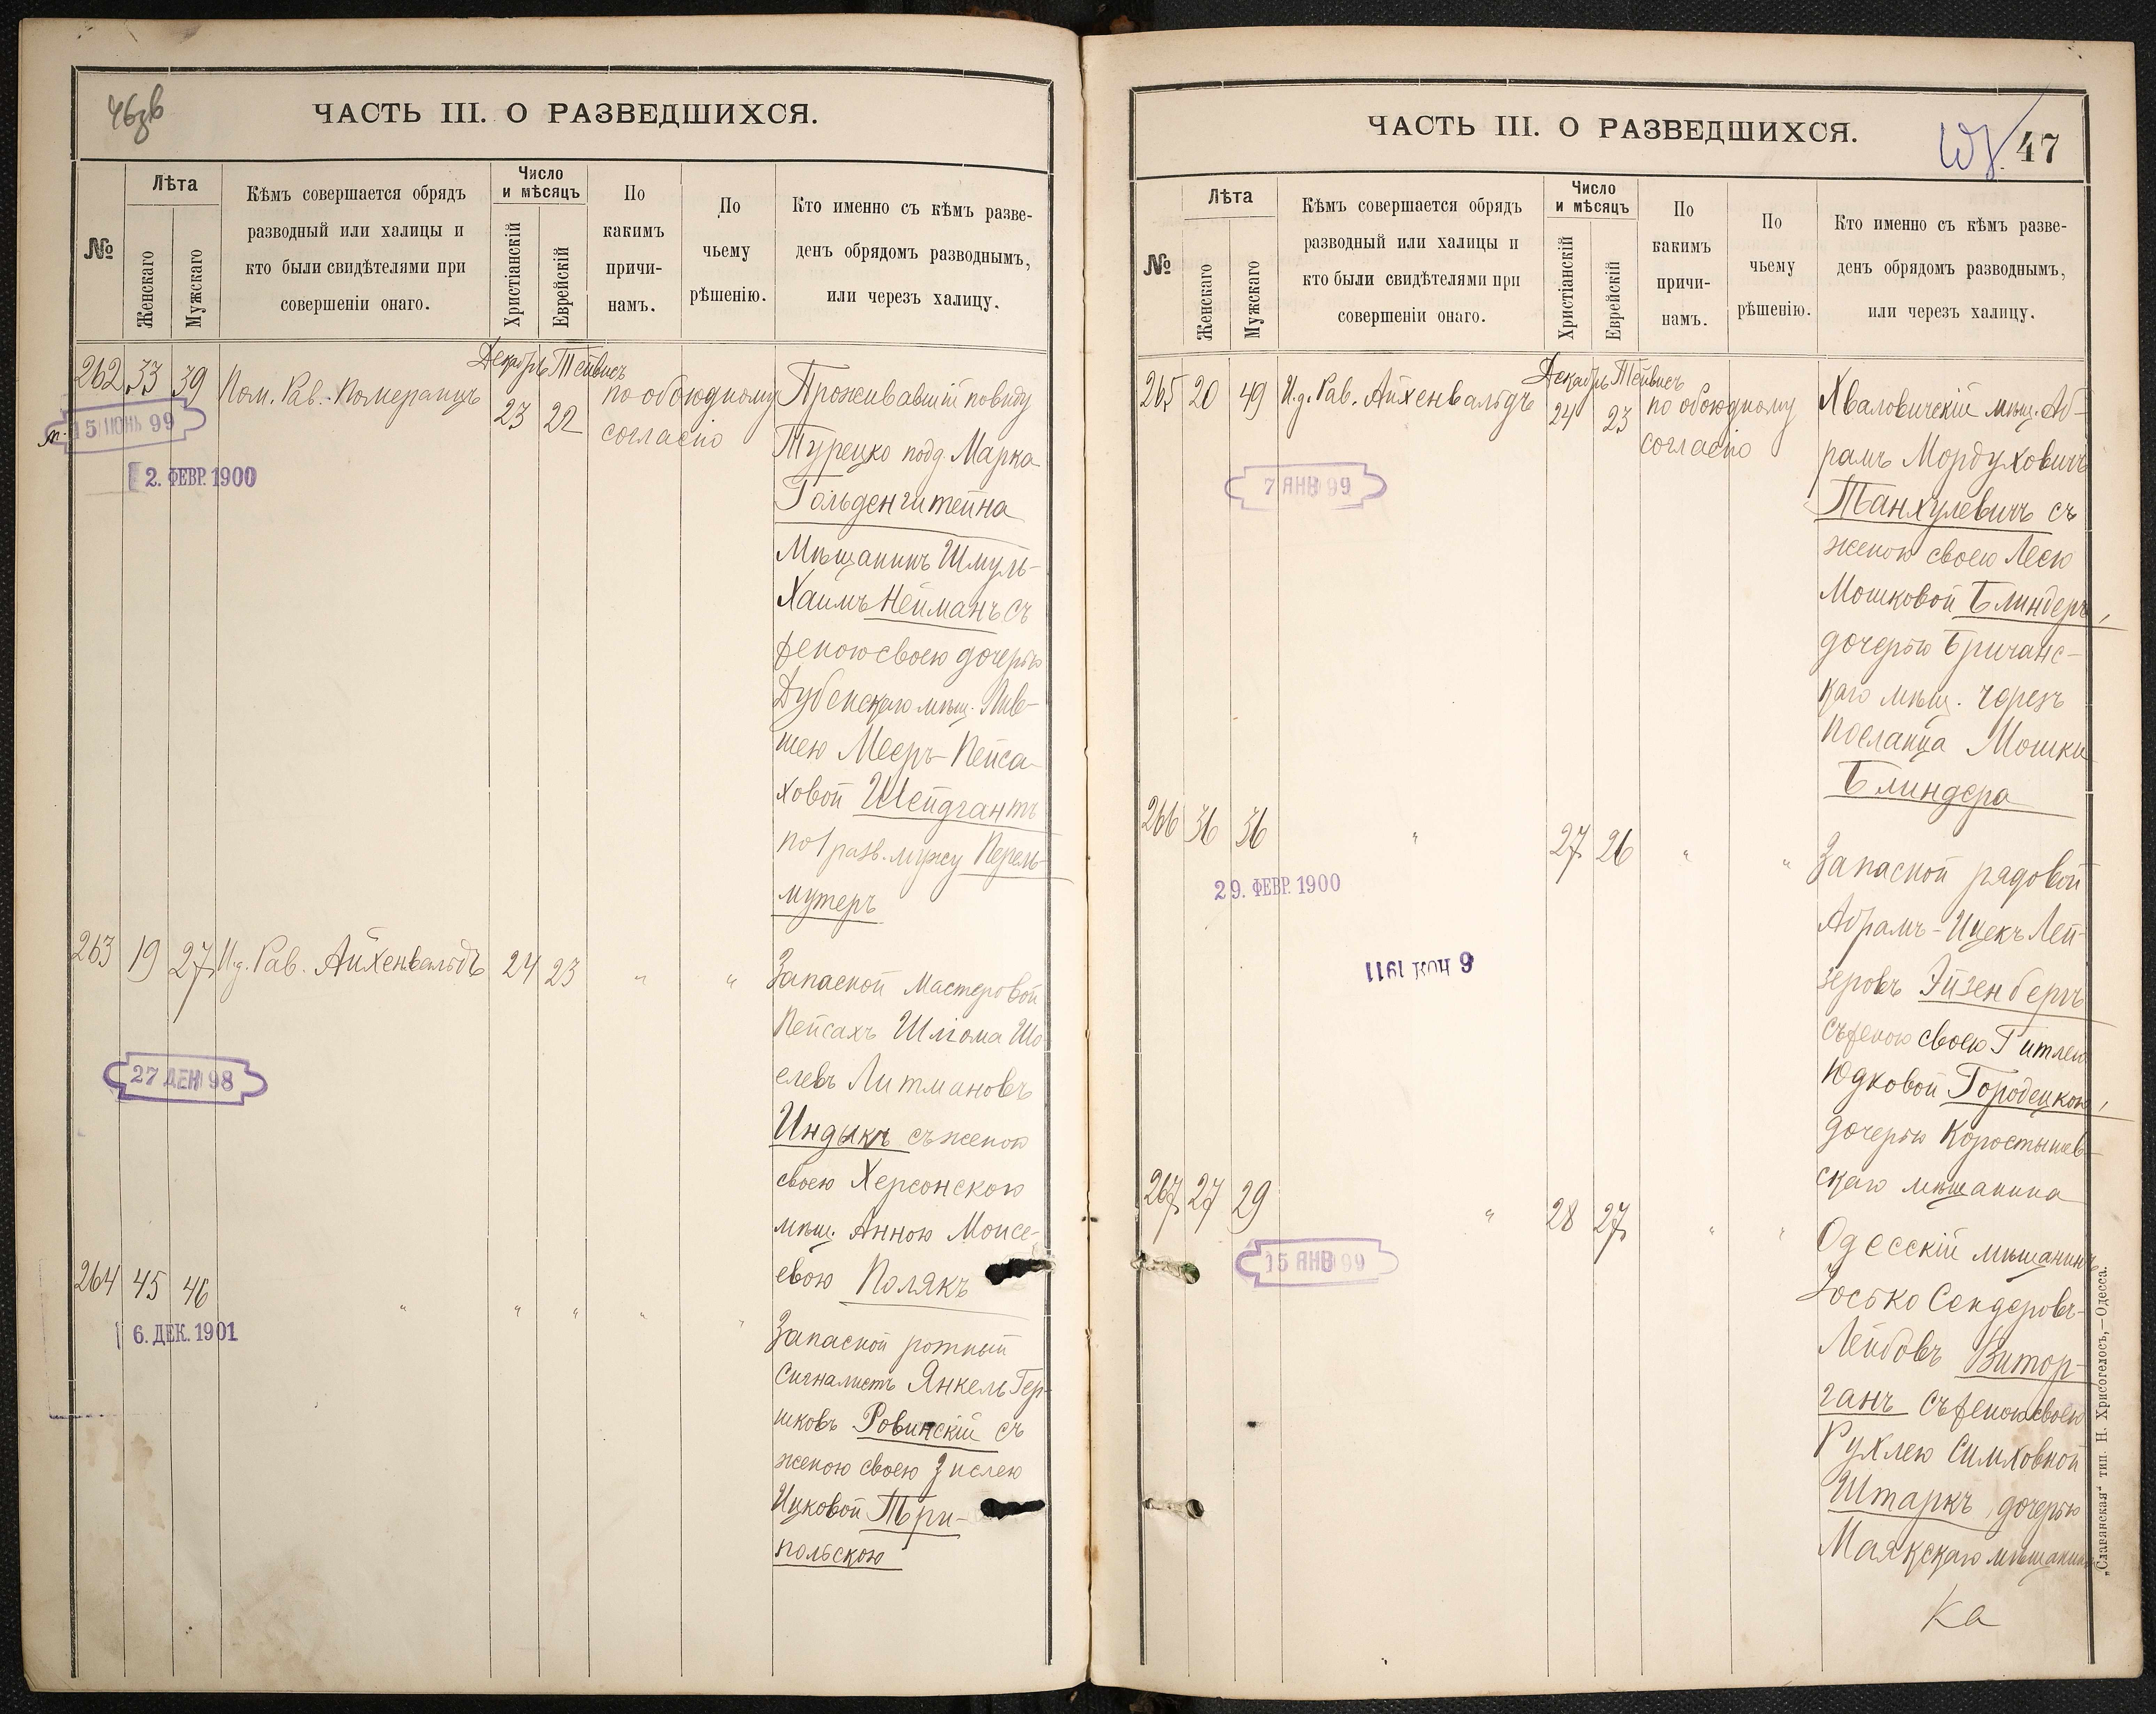 46зв
ЧАСТЬ III. О РАЗВЕДШИХСЯ.
№
Лѣта
Женскаго
Мужскаго
Кѣмъ совершается обрядъ
разводный или халицы и
кто были свидѣтелями при
совершеніи онаго.
Число
и мѣсяцъ
Христіанскій
Еврейскій
По
какимъ
причи-
намъ.
По
чьему
рѣшенію.
Кто именно съ кѣмъ разве-
денъ обрядомъ разводнымъ,
или черезъ халицу.
Декабрь Тейвисъ
262 33 39 Пом. Рав. Померанцъ 23 22 по обоюдному согласію
15 ІЮНЬ 99
2. ФЕВР. 1900
Проживавшій по виду
Турецко подд. Марка
Гольденштейна
Мѣщанинъ Шмуль-
Хаимъ Нейманъ съ
женою своею дочерью
Дубенскаго мѣщ. Лив-
шею Мееръ-Пейса-
ховой Шейдгантъ
по 1 разв. мужу Перель-
мутеръ
263 19 27 И.д. Рав. Айхенвальдъ 24 23 " "
27 ДЕК 98
Запасной Мастеровой
Пейсахъ Шліома Шо-
елевъ Литмановъ
Индыкъ съ женою
своею Херсонскою
мѣщ. Анною Моисе-
евою Полякъ
264 45 46 " " " " "
6. ДЕК. 1901
Запасной ротный
сигналистъ Янкель Гер-
шковъ Ровинскій съ
женою своею Зислею
Ицковой Три-
польскою
ЧАСТЬ III. О РАЗВЕДШИХСЯ.
47
№
Лѣта
Женскаго
Мужскаго
Кѣмъ совершается обрядъ
разводный или халицы и
кто были свидѣтелями при
совершеніи онаго.
Число
и мѣсяцъ
Христіанскій
Еврейскій
По
какимъ
причи-
намъ.
По
чьему
рѣшенію.
Кто именно съ кѣмъ разве-
денъ обрядомъ разводнымъ,
или черезъ халицу.
Декабрь Тейвисъ
265 20 49 И.д. Рав. Айхенвальдъ 24 23 по обоюдному согласію
7 ЯНВ 99
Хваловичскій мѣщ. Аб-
рамъ Мордуховичъ
Танхулевичъ съ
женою своею Лею
Мошковой Блиндеръ,
дочерью Бричанс-
каго мѣщ. черезъ
посланца Мошки
Блиндера
266 36 36 " 27 26 " "
29. ФЕВР. 1900
6 НОЯ 1911
Запасной рядовой
Абрамъ-Ицекъ Лей-
зеровъ Эйзенбергъ
съ женою своею Гитлею
Юдковой Городецкою,
дочерью Коростышев-
скаго мѣщанина
267 27 29 " 28 27 " "
15 ЯНВ 99
Одесскій мѣщанинъ
Іосько Сендеровъ-
Лейбовъ Витор-
ганъ съ женою своею
Рухлею Симховной
Штаркъ, дочерью
Маякскаго мѣщанина
Ка
„Славянская“ тип. Н. Хрисогелосъ,—Одесса.